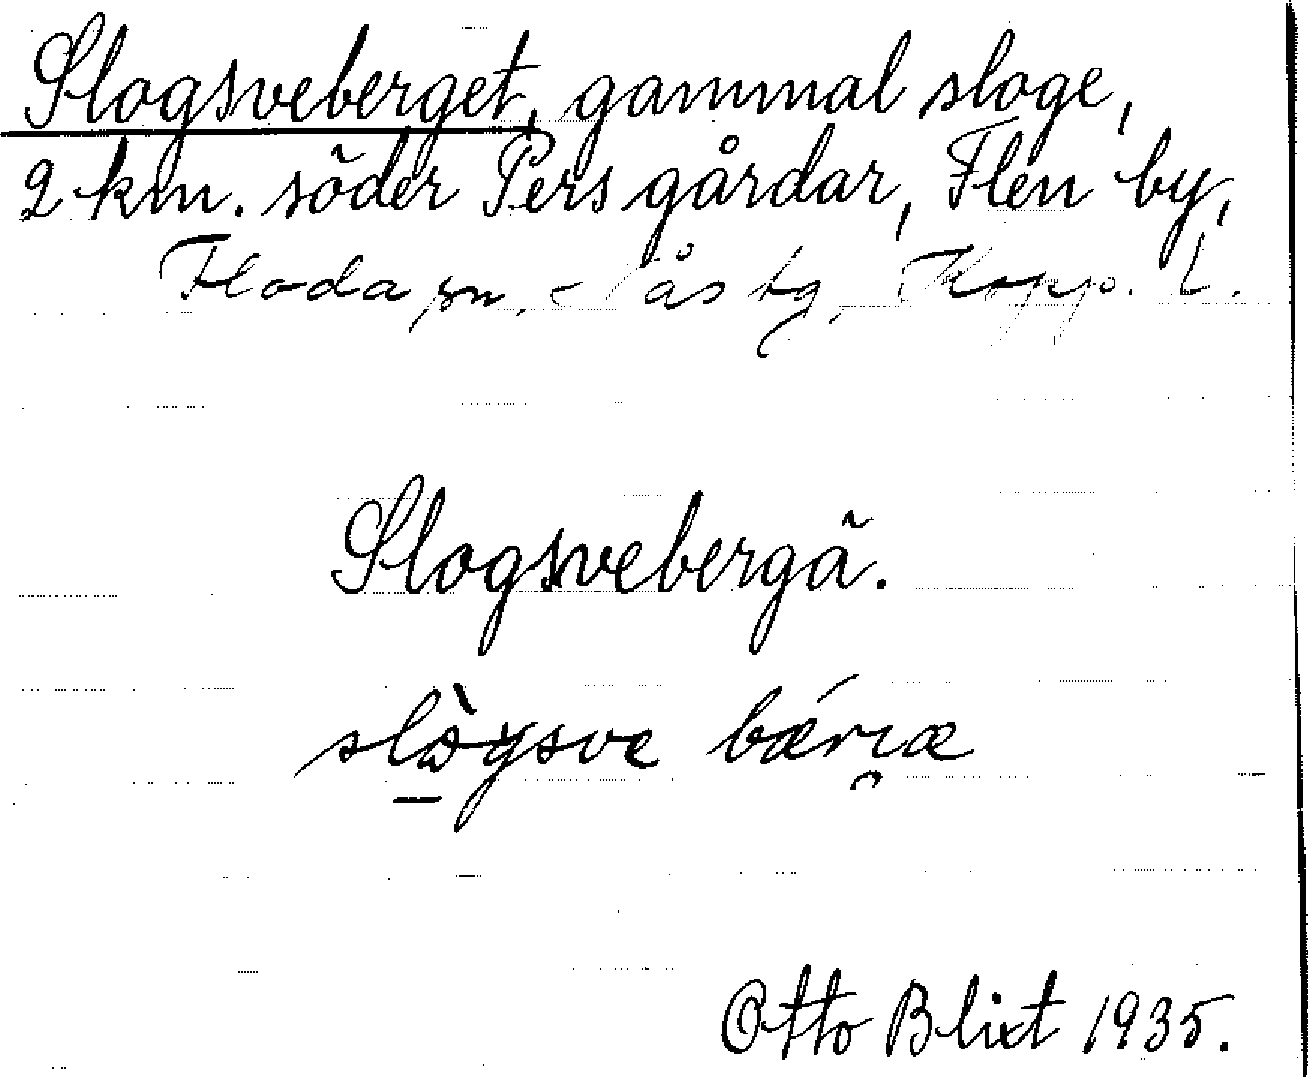 Slogsveberget, gammal sloge,
2 km. söder Pers gårdar, Flen by,
Floda sn, Nås tg, Kopp. L.
Slogsvebergä.
slògsve bǽrɪ̯æ
Otto Blixt 1935.